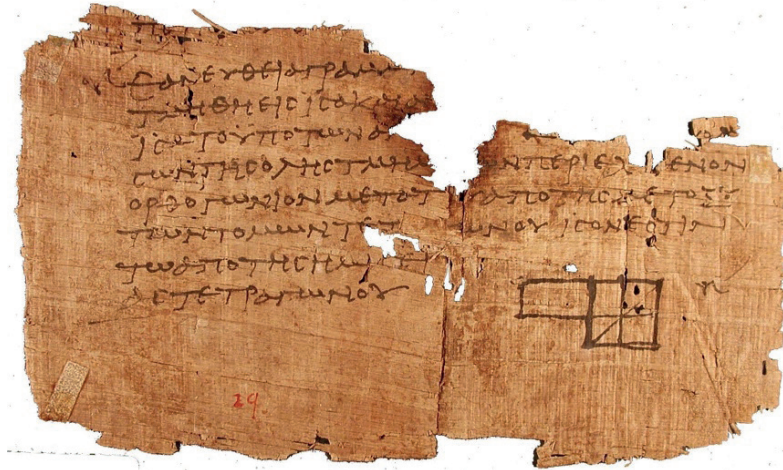 ΕΑΝΕΥΘΕΙΑΓΡΑΜΜ
ΤΜΗΘΗΕΙCΙCΑΚΑΙΑ
ΙCΑΤΟΥΠΟΤΩΝΑ
CΩΝΤΗCΟΛΗCΤΜΗΜ ΩΝΠΕΡΙΕΧ ΕΝΟΝ
ΟΡΘΟΓΩΝΙΟΝΜΕΤΑΤΟΥΑΠΟΤΗCΜΕΤΟΞΥ
ΤΩΝΤΟΜΩΝΤΕΤ ΩΝΟΥΙCΟΝΕCΤΙΝ
ΤΩΑΠΟΤΗCΗΜΙC
ΑCΤΕΤΡΑΓΩΝΟΥ
29